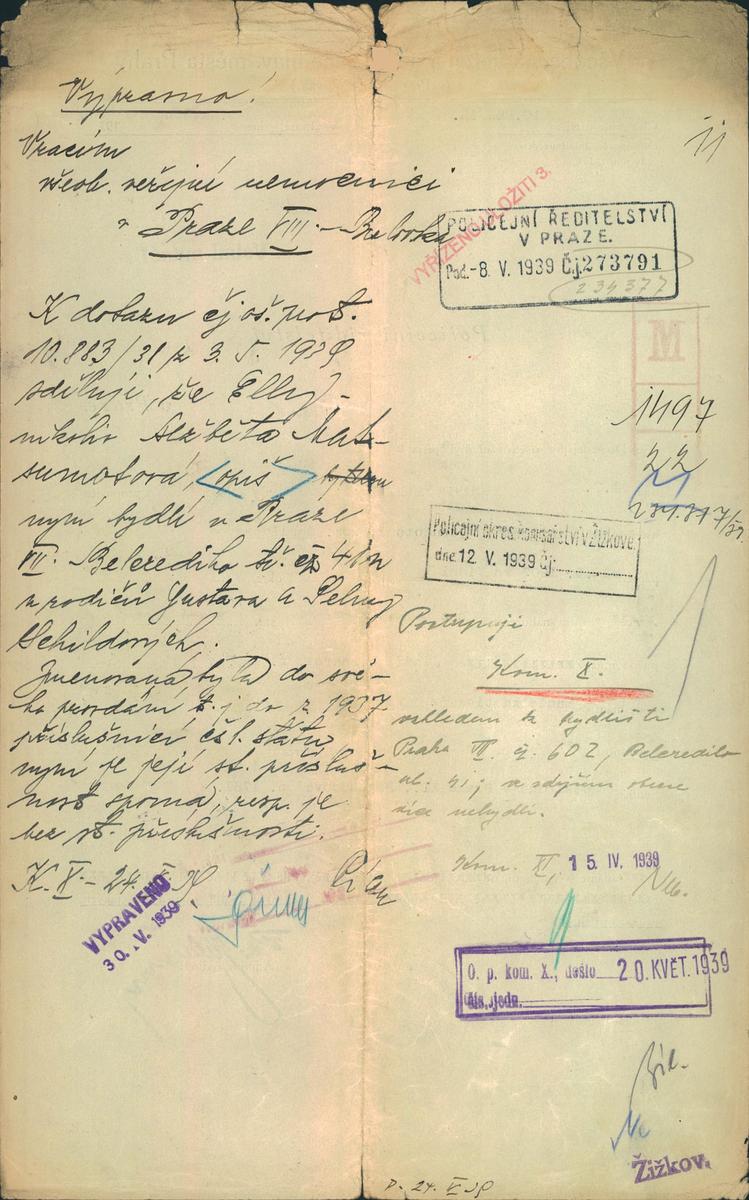 Výprasno!
Vracím
všeob. veřejné nemocnici
v Praze VIII – Bulovka
K dotazu čj oš. prot.
10.883/31 z 3. 5. 1939
sděluji, že Elly -
nikoliv Alžběta Mat-
sumotová, opiš
nyní bydlí v Praze
VII. Belcrediho tř. čp
u rodičů Gustava a Selmy
Schildových.
Jmenovaná byla do své-
ho provdání t. j. do r. 1937
příslušnicí čsl. státu,
nyní je její st. přísluš-
nost sporná, resp. je
bez st. příslušnosti.
K. X – 24.
VYPRAVENO
30. V. 1939
11
VYŘÍZENO ULOŽITI 3.
POLICEJNÍ ŘEDITELSTVÍ
V PRAZE.
Pod. -8. V. 1939 Čj. 273791
234377
M
1497
22
Policejní okres. komisařství v Žižkově
dne 12. V. 1939 Čj.
Postupuji
Kom. X.
vzhledem k bydlišti
Praha VII. čp. 602, Belcrediho
ul. 41; v zdejším obvodě
více nebydlí.
Kom. XI, 15. IV. 1939
O. p. kom. X., došlo 20. KVĚT. 1939
čís. jedn.
Žižkov.